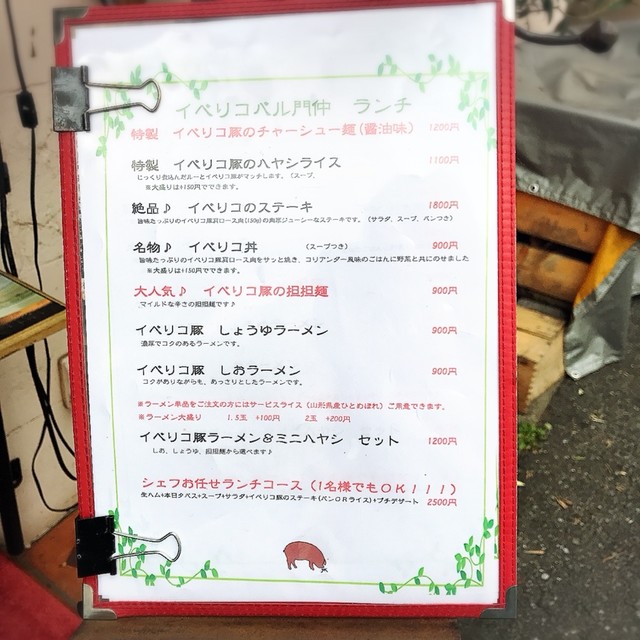 イベリコバル門仲　ランチ
特製　イベリコ豚のチャーシュー麺(醤油味)　1200円
特製　イベリコ豚のハヤシライス　1100円
じっくり煮込んだルーとイベリコ豚がマッチします。(スープ、
※大盛りは+150円でできます。
絶品♪　イベリコのステーキ　1800円
旨味たっぷりのイベリコ豚肩ロース肉(150g)の肉厚ジューシーなステーキです。(サラダ、スープ、パンつき)
名物♪　イベリコ丼　(スープつき)　900円
旨味たっぷりのイベリコ豚肩ロース肉をサッと焼き、コリアンダー風味のごはんに野菜と共にのせました
※大盛りは+150円でできます。
大人気♪　イベリコ豚の担担麺　900円
マイルドな辛さの担担麺です♪
イベリコ豚　しょうゆラーメン　900円
濃厚でコクのあるラーメンです。
イベリコ豚　しおラーメン　900円
コクがありながらも、あっさりとしたラーメンです。
※ラーメン単品をご注文の方にはサービスライス(山形県産ひとめぼれ)ご用意できます。
※ラーメン大盛り　1.5玉　+100円　2玉　+200円
イベリコ豚ラーメン&ミニハヤシ　セット　1200円
しお、しょうゆ、担担麺から選べます♪
シェフお任せランチコース(1名様でもOK!!!)
生ハム+本日タパス+スープ+サラダ+イベリコ豚のステーキ(パンORライス)+プチデザート　2500円